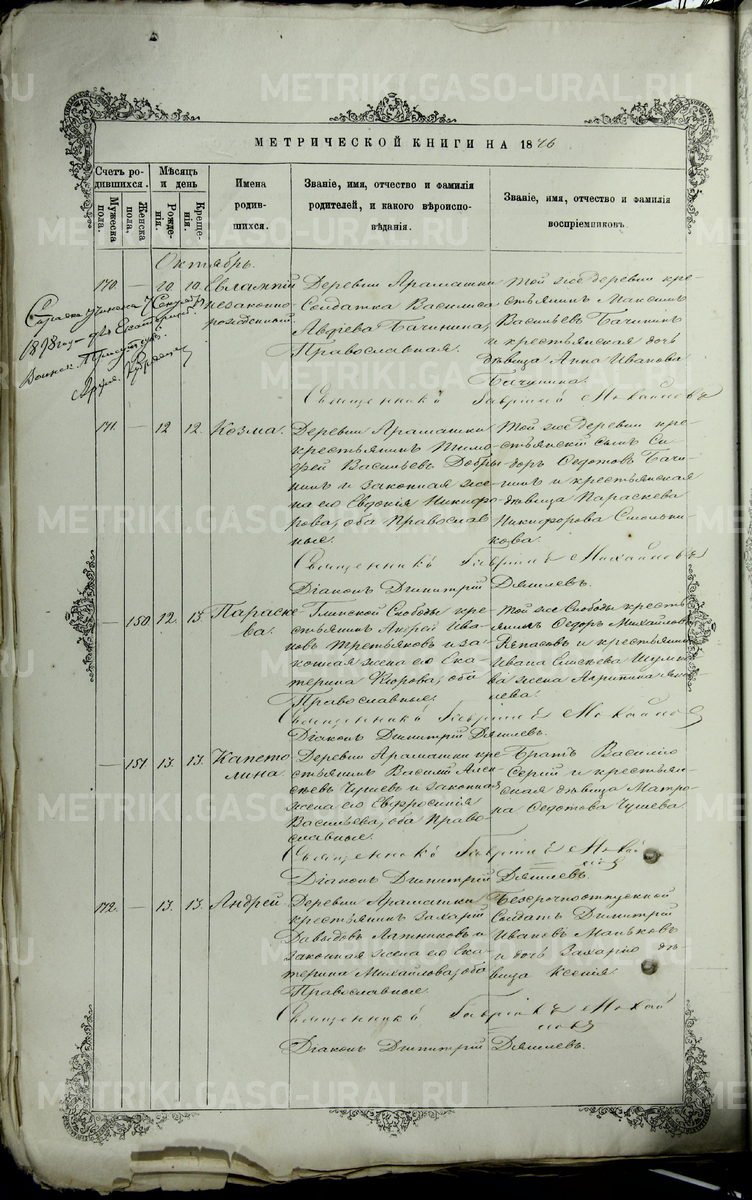 METRIKI.GASO-URAL.RU
МЕТРИЧЕСКОЙ КНИГИ НА 1876
Счетъ ро-
дившихся.
Мужеска
пола.
Женска
пола.
Мѣсяцъ
и день
Рожде-
нія.
Креще-
нія.
Имена
родив-
шихся.
Званіе, имя, отчество и фамилія
родителей, и какого вѣроиспо-
вѣданія.
Званіе, имя, отчество и фамилія
воспріемниковъ.
Октябрь.
170. — 10. 10. Евлампій
незаконно-
рожденный
Деревни Арамашки
Солдатка Василиса
Православная.
Той же деревни кре-
стьянинъ Максимъ
Васильевъ Бачининъ
и крестьянская дочь
дѣвица Анна Иванова
Бачинина.
Священникъ Гавріилъ Михайловъ
1898 года
171. — 12 12. Козма.
Деревни Арамашки
крестьянинъ Тимо-
фей Васильевъ Добры-
нинъ и законная же-
на его Евдокія Никифо-
рова, оба Православ
ные.
Той же деревни кре-
стьянскій сынъ Си-
доръ Федотовъ Бачи-
нинъ и крестьянская
дѣвица Параскева
Никифорова
Священникъ Гавріилъ Михайловъ
Діаконъ Димитрій
— 150. 12. 13. Параске-
ва.
Глинской Слободы кре-
стьянинъ Андрей Ива-
новъ Третьяковъ и за-
конная жена его Ека-
терина оба
Православные.
Той же Слободы кресть
янинъ Федоръ Михайлов
и крестьянина
Ивана
ва жена Агрипина Яко-
влева.
Священникъ Гавріилъ Михайловъ
Діаконъ Димитрій
— 151 13. 13. Капето
лина.
Деревни Арамашки кре
стьянинъ Василій Алек-
сѣевъ Чушевъ и законная
жена его Евфросинія
Васильева, оба Право-
славные.
Братъ Василію
Сергій и крестьян-
ская дѣвица Матро-
на Федотова Чушева.
Священникъ Гавріилъ Михай
ловъ
Діаконъ Димитрій
172. — 13. 13. Андрей.
Деревни Арамашки
крестьянинъ Захарій
Давыдовъ Латниковъ и
законная жена его Ека
терина Михайлова, оба
Православные.
Безсрочноотпускной
Солдатъ Димитрій
Ивановъ Маньковъ
и дочь Захарію дѣ-
вица Ксенія.
Священникъ Гавріилъ Михай
ловъ
Діаконъ Димитрій